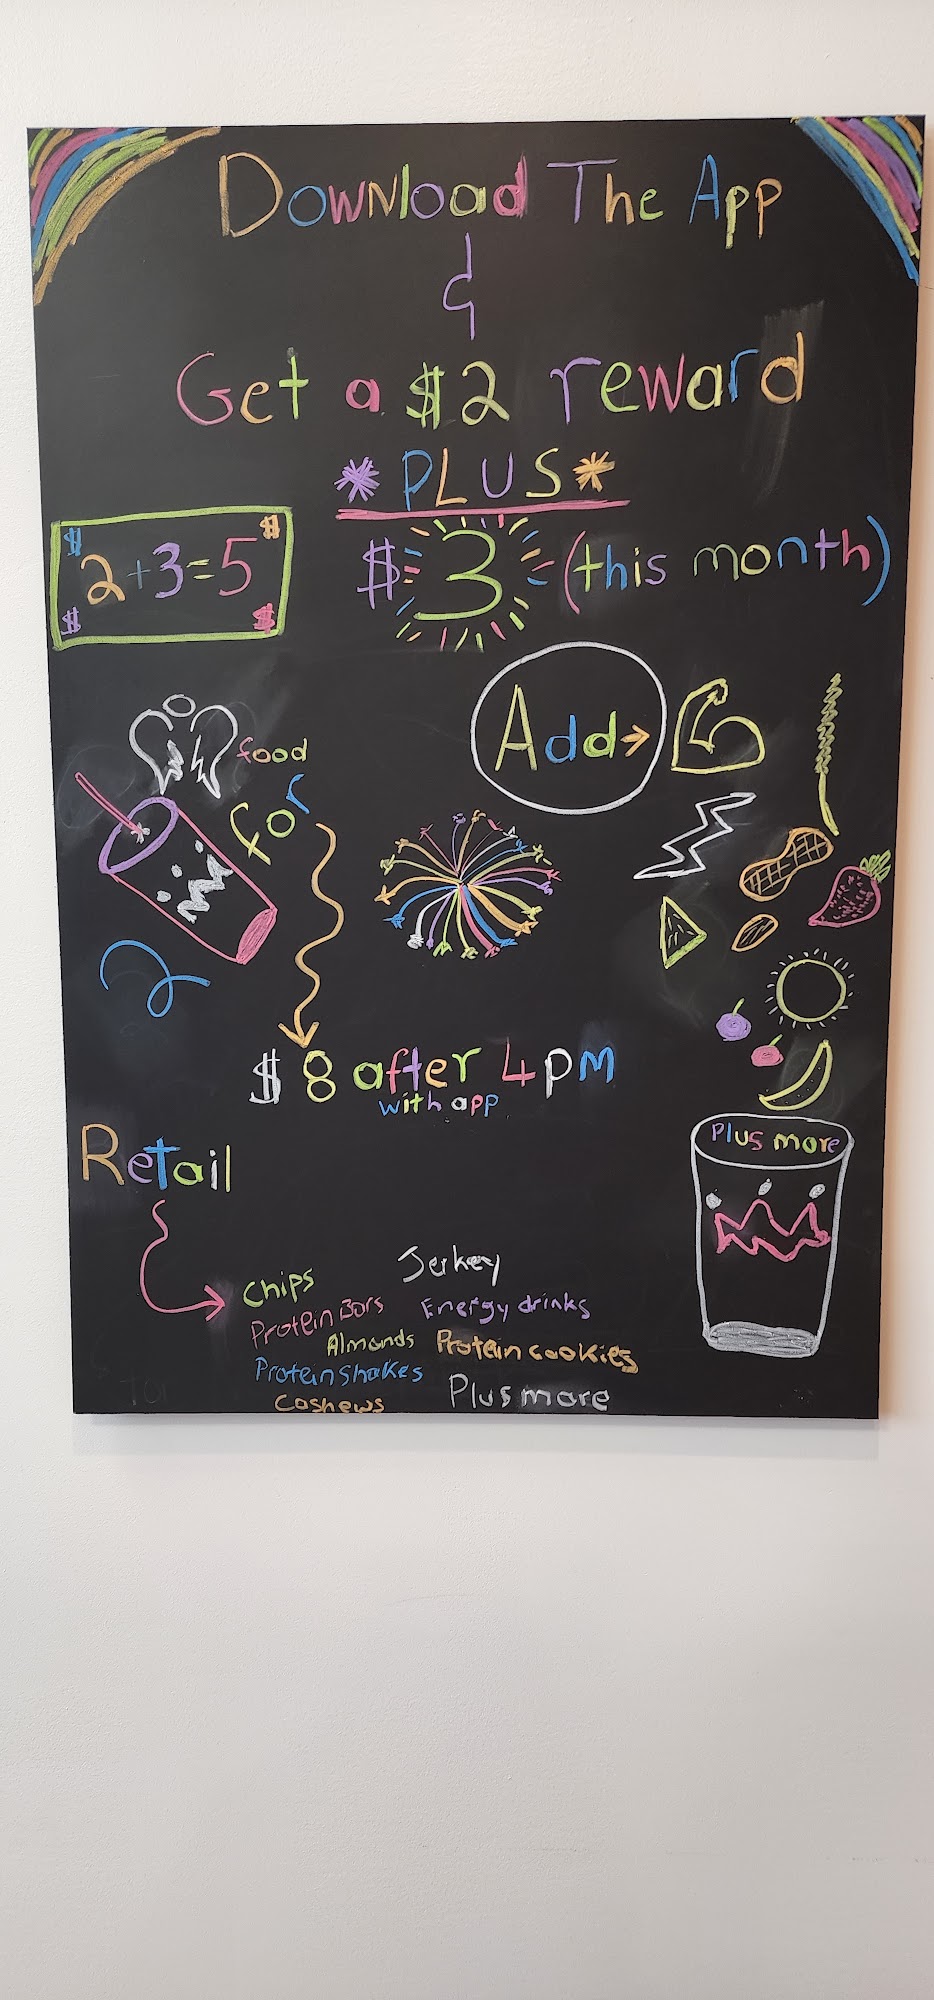 Download The App
&
Get a $2 reward
*PLUS*
$3 (this month)
$ $
2+3=5
$ $
Add→
food
for
$8 after 4pm
with app
Retail
Plus more
Jerkey
Chips
Protein Bars
Energy drinks
Almonds
Protein cookies
Protein shakes
Cashews
Plus more